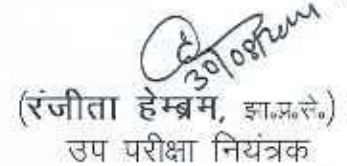 30/08/2024
(रंजीता हेम्ब्रम, झा॰प्र॰से॰)
उप परीक्षा नियंत्रक